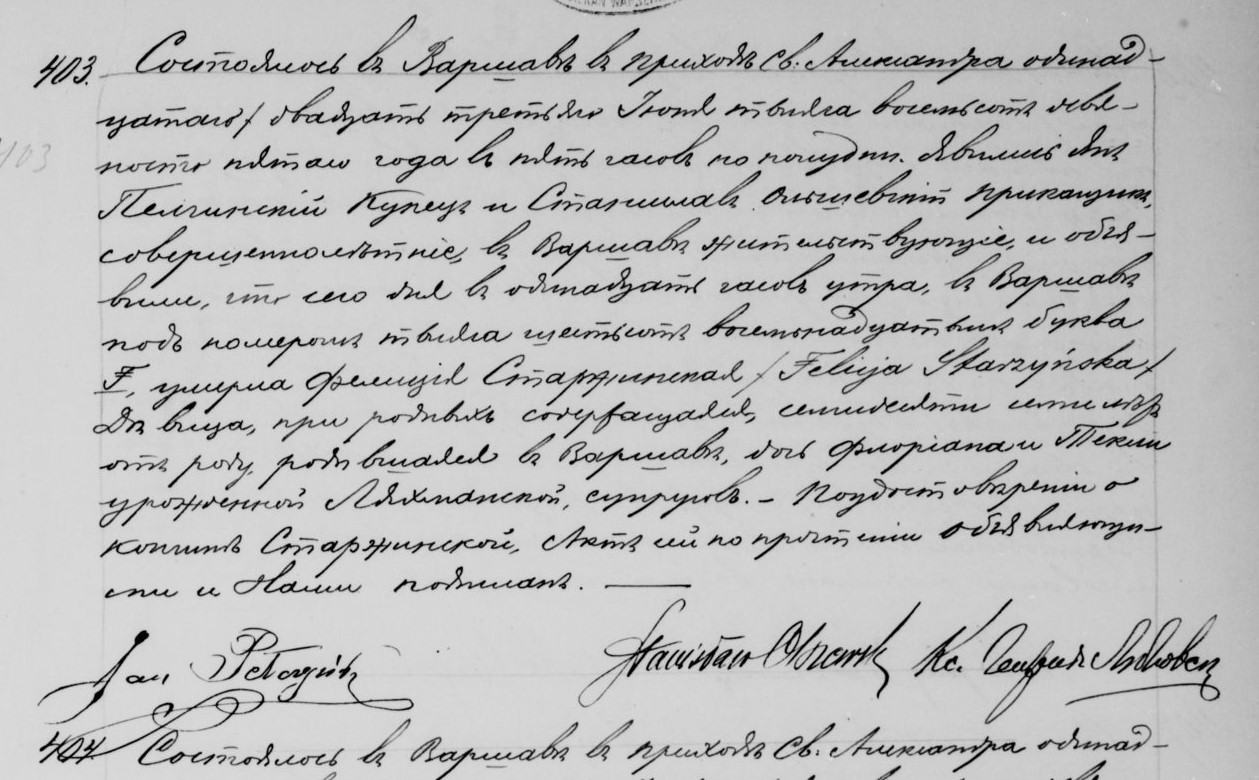 403. Состоялось въ Варшавѣ въ приходѣ Св. Александра одинад-
цатаго / двадцать третьяго Іюня тысяча восемьсотъ девя-
носто пятаго года въ пять часовъ по полудни. Явились Янъ
Купецъ и Станиславъ Прикащикъ,
совершеннолѣтніе, въ Варшавѣ жительствующіе, и объя-
вили, что сего дня въ одинадцать часовъ утра, въ Варшавѣ
подъ номеромъ тысяча шестьсотъ восемьнадцатымъ буква
F, умерла Фелиція Старжинская / Felicja Starzyńska /
Дѣвица, при родныхъ содержащаяся, семидесяти семи лѣтъ
отъ роду, родившаяся въ Варшавѣ, дочь Флоріана и Текли
урожденной Ляхманской, супруговъ. – По удостовѣреніи о
кончинѣ Старжинской, Актъ сей по прочтеніи объявляющи-
ми и Нами подписанъ.
Jan Stanisław Кс.
404 Состоялось въ Варшавѣ въ приходѣ Св. Александра одинад-
403